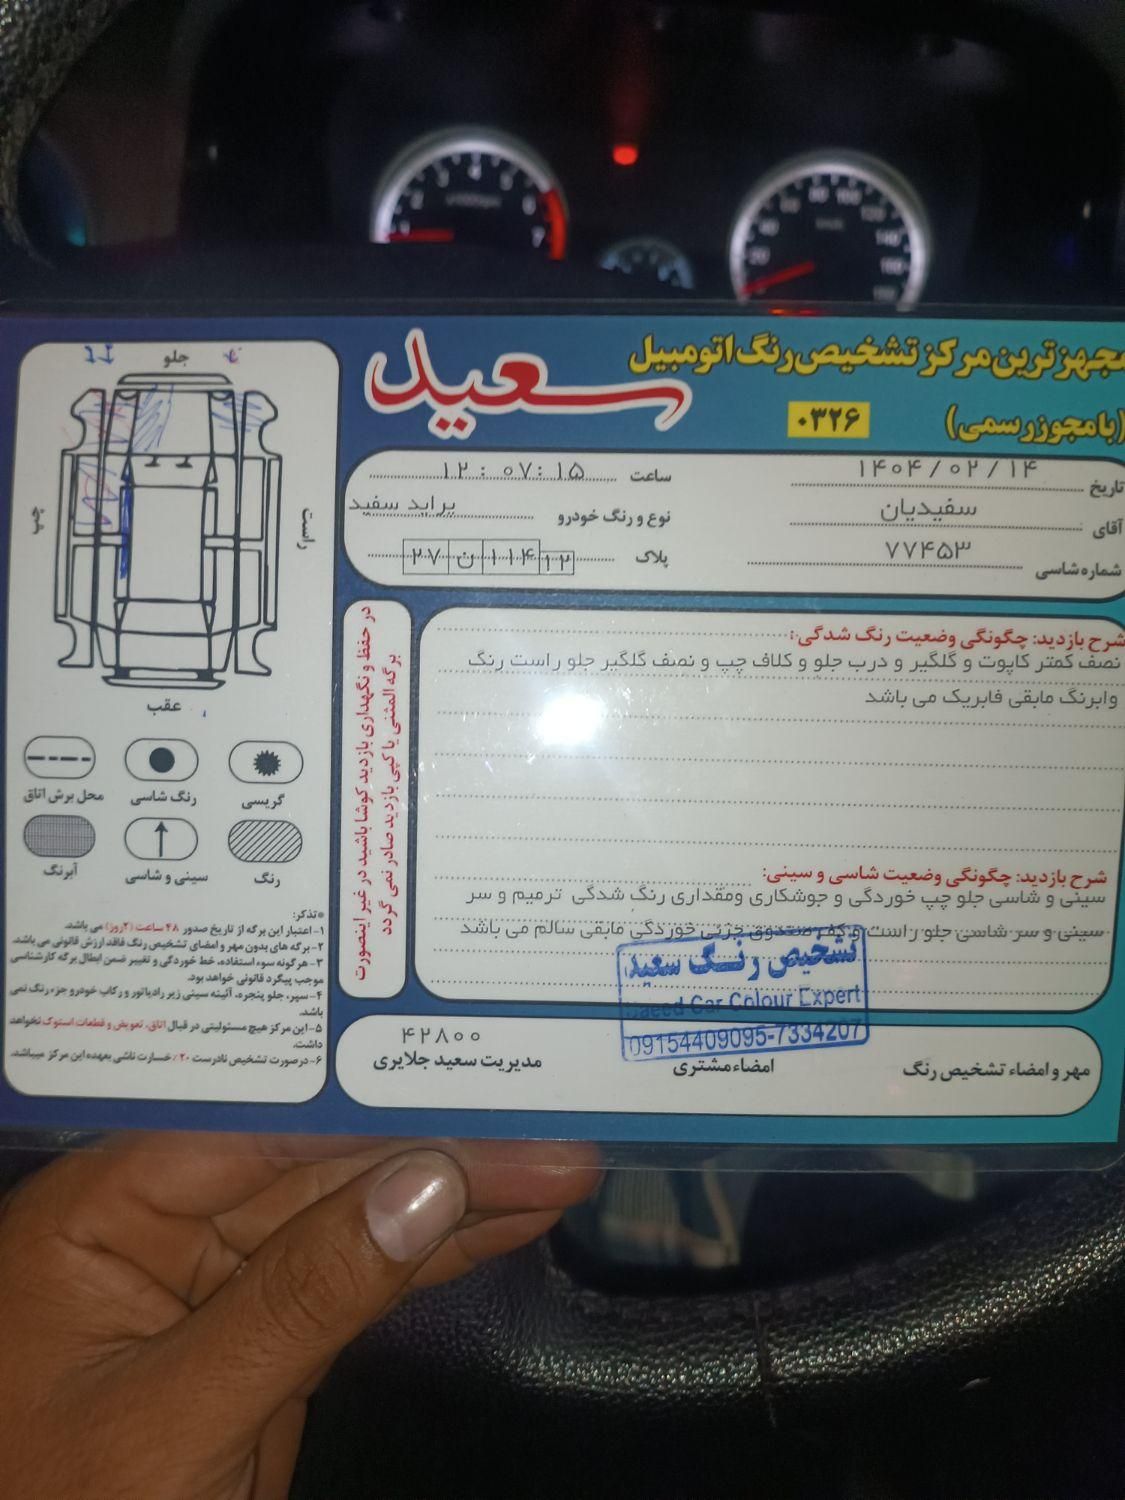 مجهزترین مرکز تشخیص رنگ اتومبیل
سعید
(با مجوز رسمی)
۰۳۲۶
تاریخ ۱۴۰۴/۰۲/۱۴
ساعت ۱۲:۰۷:۱۵
آقای سفیدیان
نوع و رنگ خودرو پراید سفید
شماره شاسی ۷۷۴۵۳
پلاک ۲۷ ن ۱۱۴ ۱۲
شرح بازدید: چگونگی وضعیت رنگ شدگی:
نصف کمتر کاپوت و گلگیر و درب جلو و کلاف چپ و نصف گلگیر جلو راست رنگ
وابرنگ مابقی فابریک می باشد
شرح بازدید: چگونگی وضعیت شاسی و سینی:
سینی و شاسی جلو چپ خوردگی و جوشکاری ومقداری رنگ شدگی ترمیم و سر
سینی و سر شاسی جلو راست و کف صندوق جزئی خوردگی مابقی سالم می باشد
تشخیص رنگ سعید
Saeed Car Colour Expert
09154409095-7334207
مهر و امضاء تشخیص رنگ
امضاء مشتری
۴۲۸۰۰
مدیریت سعید جلایری
در حفظ و نگهداری بازدید کوشا باشید در غیر اینصورت
برگه المثنی یا کپی بازدید صادر نمی گردد
جلو
راست
چپ
عقب
گریسی
رنگ شاسی
محل برش اتاق
رنگ
سینی و شاسی
آبرنگ
*تذکر:
۱- اعتبار این برگه از تاریخ صدور ۴۸ ساعت (۲روز) می باشد.
۲- برگه های بدون مهر و امضای تشخیص رنگ فاقد ارزش قانونی می باشد.
۳- هرگونه سوء استفاده، خط خوردگی و تغییر ضمن ابطال برگه کارشناسی
موجب پیگرد قانونی خواهد بود.
۴- سپر، جلو پنجره، آئینه سینی زیر رادیاتور و رکاب خودرو جزء رنگ نمی
باشد.
۵- این مرکز هیچ مسئولیتی در قبال اتاق، تعویض و قطعات استوک نخواهد
داشت.
۶- در صورت تشخیص نادرست ۲۰٪ خسارت ناشی بعهده این مرکز میباشد.